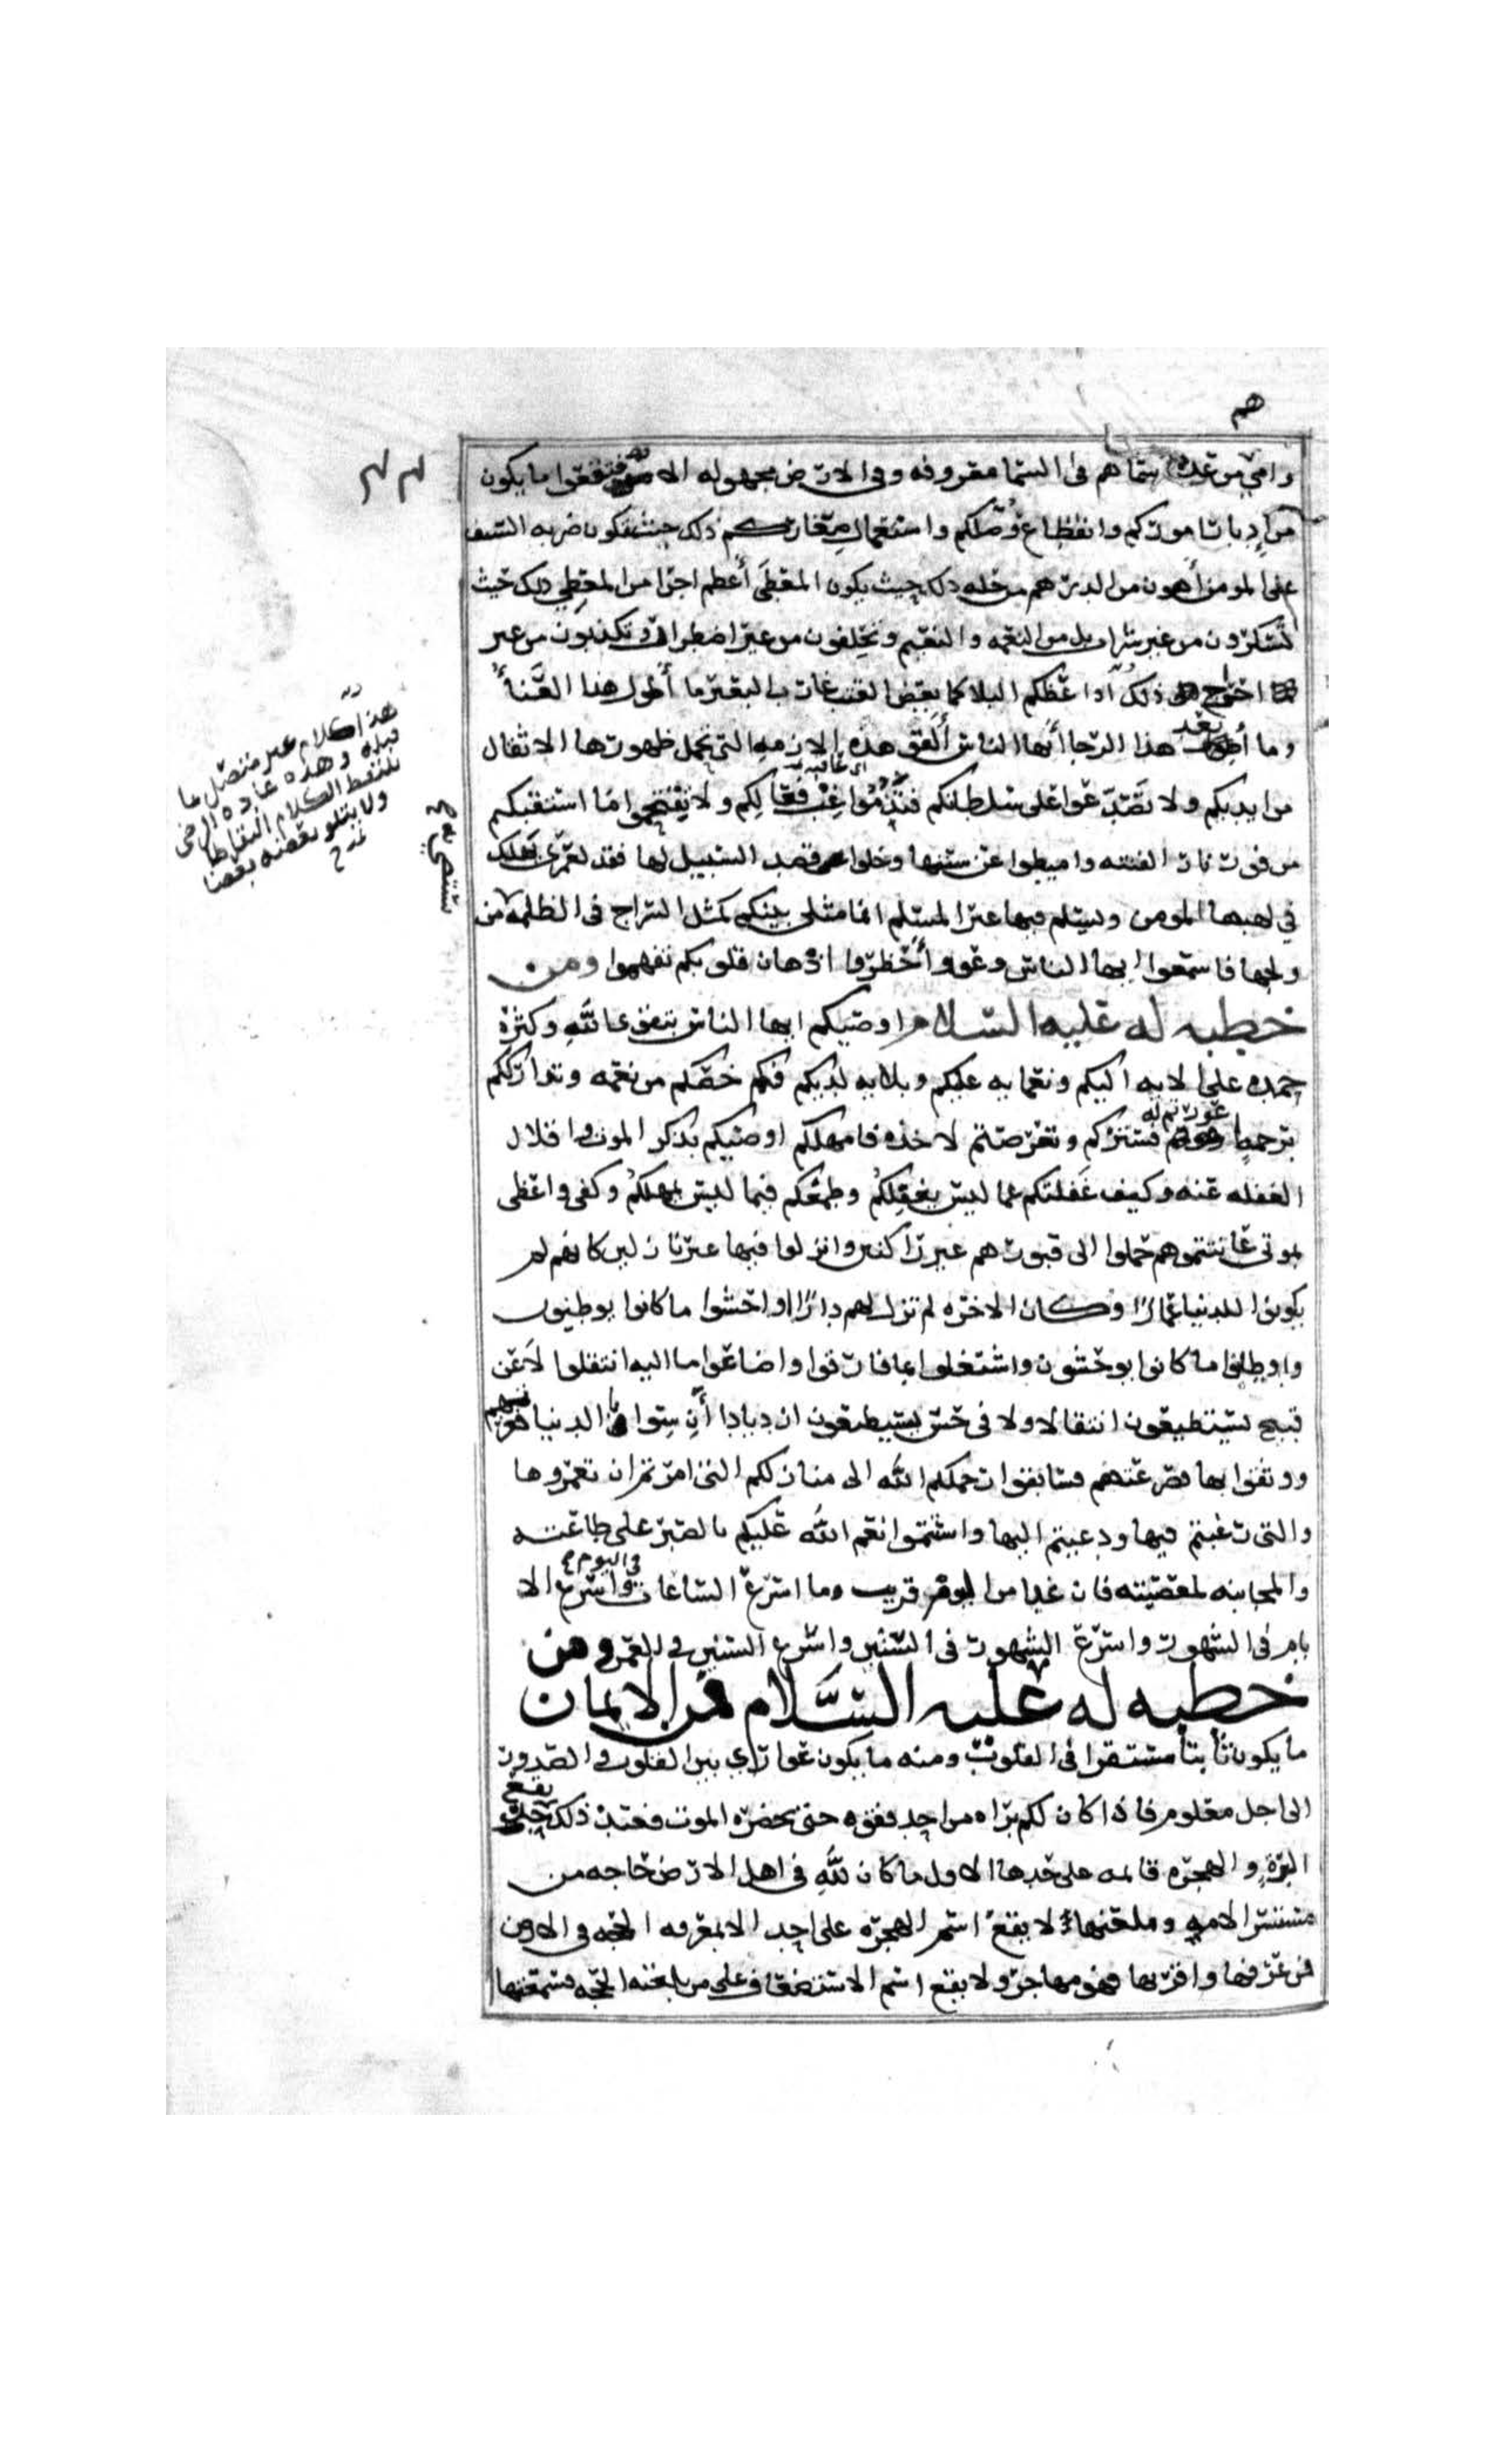 هم
وامي من عدة اسماهم في السما معروفه وفي الارض مجهوله الا فتوقعوا ما يكون
من ادبار اموركم وانقطاع وُصَلكم واستعمال صِغاركم ذلك حيث تكون ضربه السيف
على المومن اهون من الدرهم من حله ذلك حيث يكون المعطَى أعظم اجرا من المعطِي ذلك حيث
تَسكرون من غير شراب بل من النعمه والنعيم وتحلفون من غير اضطرار وتكذبون من غير
احراج ذلك اذا عضكم البلا كما يعض القتب غارب البعير ما أطول هذا العَنَأ
وما أبعد هذا الرجا أيها الناس ألقوا هذه الازمه التي تحمل ظهورها الاثقال
اي عاقبه
من ايديكم ولا تَصَدّعوا على سلطانكم فتذُمّوا غِبّ فعالِكم ولا تقتحموا ما استقبلكم
من فور نار الفتنه واميطوا عن سننها وخلوا قصد السبيل لها فقد لعمري يهلك
في لهبها المومن ويسلم فيها غير المسلم انما مثلي بينكم كمثل السراج في الظلمه من
ولجها فاسمعوا ايها الناس وعوا وأحضروا اذهان قلوبكم تفهموا ومن
خطبه له عليه السلام اوصيكم ايها الناس بتقوى الله وكثرة
حمده على الايه اليكم ونعمايه عليكم وبلايه لديكم فكم خصكم من نعمه وتدارككم
برحمه اعورتم له فستركم وتعرضتم لاخذه فامهلكم اوصيكم بذكر الموت واقلال
الغفله عنه وكيف غَفلتكم عما ليس يغفِلكُم وطمعكم فيما ليس يمهلكُم وكفى واعظا
بموتى عاينتموهم حملوا الى قبورهم غير راكبين وانزلوا فيها غير نازلين كانهم لم
يكونوا للدنيا عمارًا وكان الاخره لم تزل لهم دارًا اوحشوا ما كانوا يوطنون
واوطنوا ما كانوا يوحشون واشتغلوا بما فارقوا واضاعوا ما اليه انتقلوا لاَ عن
قبيح يستطيعون انتقالا ولا في حسن يستطيعون ازديادا أنِسوا بالدنيا فغرتهم
ووثقوا بها فصرعتهم فسابقوا رحمكم الله الى منازلكم التي امرتم ان تعمروها
والتي رغبتم فيها ودعيتم اليها واستتموا نعم الله عليكم بالصبر على طاعته
والمجانبه لمعصيته فان غدا من اليوم قريب وما اسرع الساعات في اليوم واسرع الا
يام في الشهور واسرع الشهور في السنين واسرع السنين في العمر ومن
خطبه له عليه السَّلام فمن الايمان
ما يكون ثابتا مستقرا في القلوب ومنه ما يكون عواري بين القلوب والصدور
الى اجل معلوم فاذا كان لكم براه من احد فقفوه حتى يحضره الموت فعند ذلك يقع حد
البراة والهجره قايمه على حدها الاول ما كان لله في اهل الارض حاجه من
مستسر الامه ومعلنها لا يقع اسم الهجره على احد الا بمعرفه الحجه في الارض
فمن عرفها واقر بها فهو مهاجر ولا يقع اسم الاستضعاف على من بلغته الحجه فسمعتها
هذا كلام غير متصل بما
قبله وهذه عادة الرضي
يلتقط الكلام التقاطا
ولا يتلو بعضه بعضا